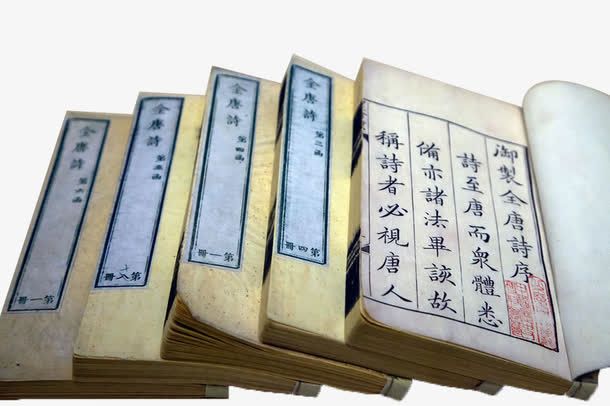 御製全唐詩序
詩至唐而衆體悉
俻亦諸法畢該故
稱詩者必視唐人
全唐詩
第三函
第四冊
全唐詩
第四函
第一冊
全唐詩
第五函
第八冊
全唐詩
第六函
第一冊